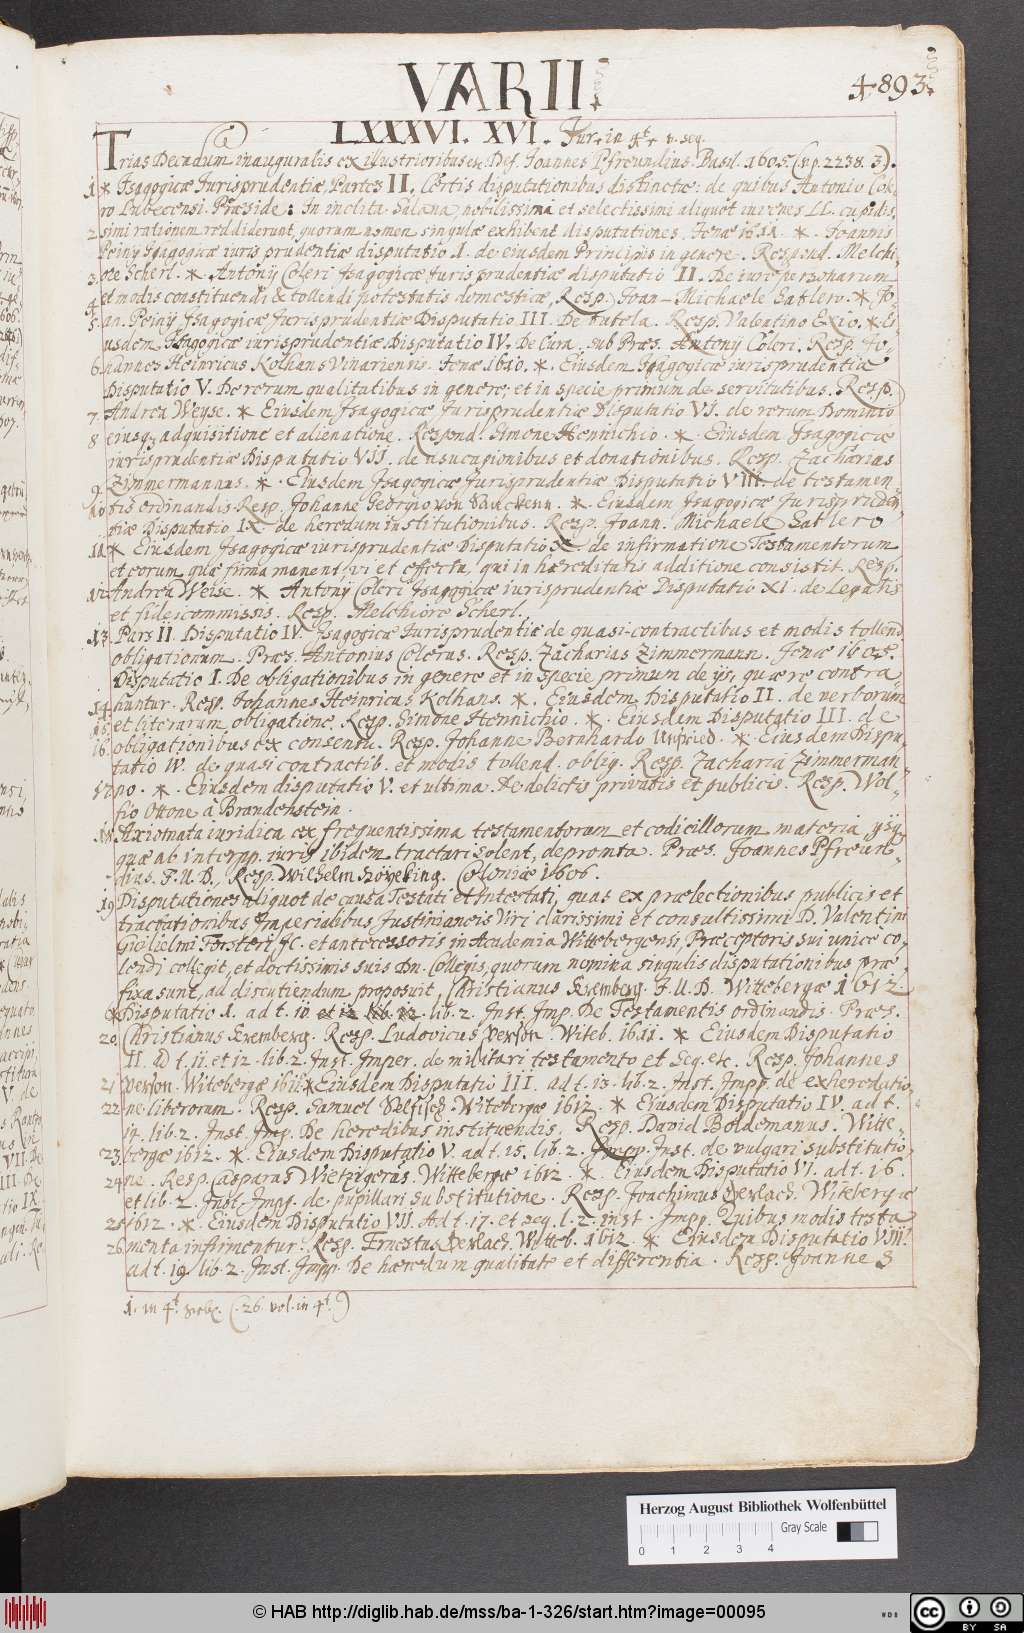 VARII.
4893.
LXXXVI. XVI. Jur. in 4t. v. seq.
Trias Decadum inauguralis ex illustrioribus etc. Def. Joannes Pfreundius. Basil. 1605. (vp. 2238. 3).
1 * Isagogicæ Jurisprudentiæ, Partes II. Certis disputationibus distinctæ: de quibus Antonio Cole-
ro Lubecensi Præside: In inclita Salana, nobilissimi et selectissimi aliquot iuvenes LL. cupidis-
2 simi rationem reddiderunt, quorum nomen singulæ exhibent disputationes. Jenæ 1611. * Joannis
Peiny Isagogicæ iuris prudentiæ disputatio I. de eiusdem Principiis in genere. Respond. Melchi-
3 ore Scherl. * Antonÿ Coleri Isagogicæ Jurisprudentiæ disputatio II. De iure personarum
4 et modis constituendi & tollendi potestatis domesticæ, Resp. Joan-Michaele Satlero. * Jo-
5 an. Peiny Isagogicæ Jurisprudentiæ Disputatio III. De tutela. Resp. Valentino Exio. * Ei-
usdem Isagogicæ iurisprudentiæ Disputatio IV. De Cura. sub Præs. Antony Coleri. Resp. Jo-
6 hannes Heinricus Kolhans Vinariensis. Jenæ 1610. * Eiusdem Isagogicæ iurisprudentiæ
Disputatio V. De rerum qualitatibus in genere; et in specie primum de servitutibus. Resp.
7 Andrea Weyse. * Eiusdem Isagogicæ Jurisprudentiæ Disputatio VI. de rerum Dominio
8 eiusq; adquisitione et alienatione. Respond. Simone Hennichio. * Eiusdem Isagogicæ
iurisprudentiæ Disputatio VII. de usucapionibus et donationibus. Resp. Zacharias
9 Zimmermannus. * Eiusdem Isagogicæ Jurisprudentiæ Disputatio VIII. de testamen-
10 tis ordinandis. Resp. Johanne Georgio von. * Eiusdem Isagogicæ Jurispruden-
tiæ Disputatio IX. de heredum institutionibus. Resp. Joann. Michaele Satlero
11 * Eiusdem Isagogicæ iurisprudentiæ Disputatio X. de infirmatione Testamentorum
et eorum quæ firma manent, vi et effectu, qui in hæreditatis additione consistit. Resp.
12 Andrea Weise. * Antony Coleri Isagogicæ iurisprudentiæ Disputatio XI. de Legatis
et fideicommissis. Resp. Melchiore Scherl.
13 Pars II. Disputatio IV. Isagogicæ Jurisprudentiæ de quasi-contractibus et modis tollend.
obligationum. Præs. Antonius Colerus. Resp. Zacharias Zimmermann. Jenæ 1605.
Disputatio I. De obligationibus in genere et in specie primum de ijs, quæ re contra-
14 huntur. Resp. Johannes Heinricus Kolhans. * Eiusdem Disputatio II. de verborum
15 et literarum obligatione. Resp. Simone Hennichio. * Eiusdem Disputatio III. de
16 obligationibus ex consensu. Resp. Johanne Bernhardo Unfried. * Eiusdem Dispu-
tatio IV. de quasi contractib. et modis tollend. oblig. Resp. Zacharia Zimmerman-
17 no. * Eiusdem disputatio V. et ultima. De delictis privatis et publicis. Resp. Wol-
fio Ottone à Brandenstein.
18 Axiomata iuridica ex frequentissima testamentorum et codicillorum materia, ijsq;
quæ ab interpp. iuris ibidem tractari solent, depromta. Præs. Joannes Pfreun-
dius. J.U.D., Resp. Wilhelm. Coloniæ 1606.
19 Disputationes aliquot de causa Testati et Intestati, quas ex prælectionibus publicis et
tractationibus Imperialibus Justinianeis Viri clarissimi et consultissimi D. Valentini
Guilielmi Forsteri JC. et antecessoris in Academia Wittebergensi, Præceptoris sui unice co-
lendi collegit, et doctissimis suis Dn. Collegis, quorum nomina singulis disputationibus præ-
fixa sunt, ad discutiendum proposuit, Christianus Kremberg. J.U.D. Wittebergæ 1612.
* Disputatio 1. ad t. 10 et 12 lib. 12. lib. 2. Inst. Imp. De Testamentis ordinandis. Præs.
20 Christianus Kremberg. Resp. Ludovicus Person. Witeb. 1611. * Eiusdem Disputatio
II. ad t. 11. et 12. lib. 2. Inst. Imper. de militari testamento et seq. etc. Resp. Johannes
21 Person. Witebergæ 1611. * Eiusdem Disputatio III. ad t. 13. lib. 2. Inst. Impp. de exheredatio-
22 ne liberorum. Resp. Samuel Selfisch. Witebergæ 1612. * Eiusdem Disputatio IV. ad t.
14. lib. 2. Inst. Imp. De heredibus instituendis. Resp. David Boldemanus. Witte-
23 bergæ 1612. * Eiusdem Disputatio V. ad t. 15. lib. 2. Impp. Inst. de vulgari substitutio-
24 ne. Resp. Casparus Wietzigerus. Wittebergæ 1612. * Eiusdem Disputatio VI. ad t. 16.
et lib. 2. Inst. Impp. de pupillari substitutione. Resp. Joachimus Gerlach. Witebergæ
25 1612. * Eiusdem Disputatio VII. Ad t. 17. et seq. l. 2. inst. Impp. Quibus modis testa-
26 menta infirmentur. Resp. Ernestus Gerlach. Witteb. 1612. * Eiusdem Disputatio VIII.
ad t. 19. lib. 2. Inst. Impp. De hæredum qualitate et differentia. Resp. Joannes
1. in 4t. (26. vol. in 4t.)
Herzog August Bibliothek Wolfenbüttel
Gray Scale
0 1 2 3 4
© HAB http://diglib.hab.de/mss/ba-1-326/start.htm?image=00095
WDB
cc BY SA